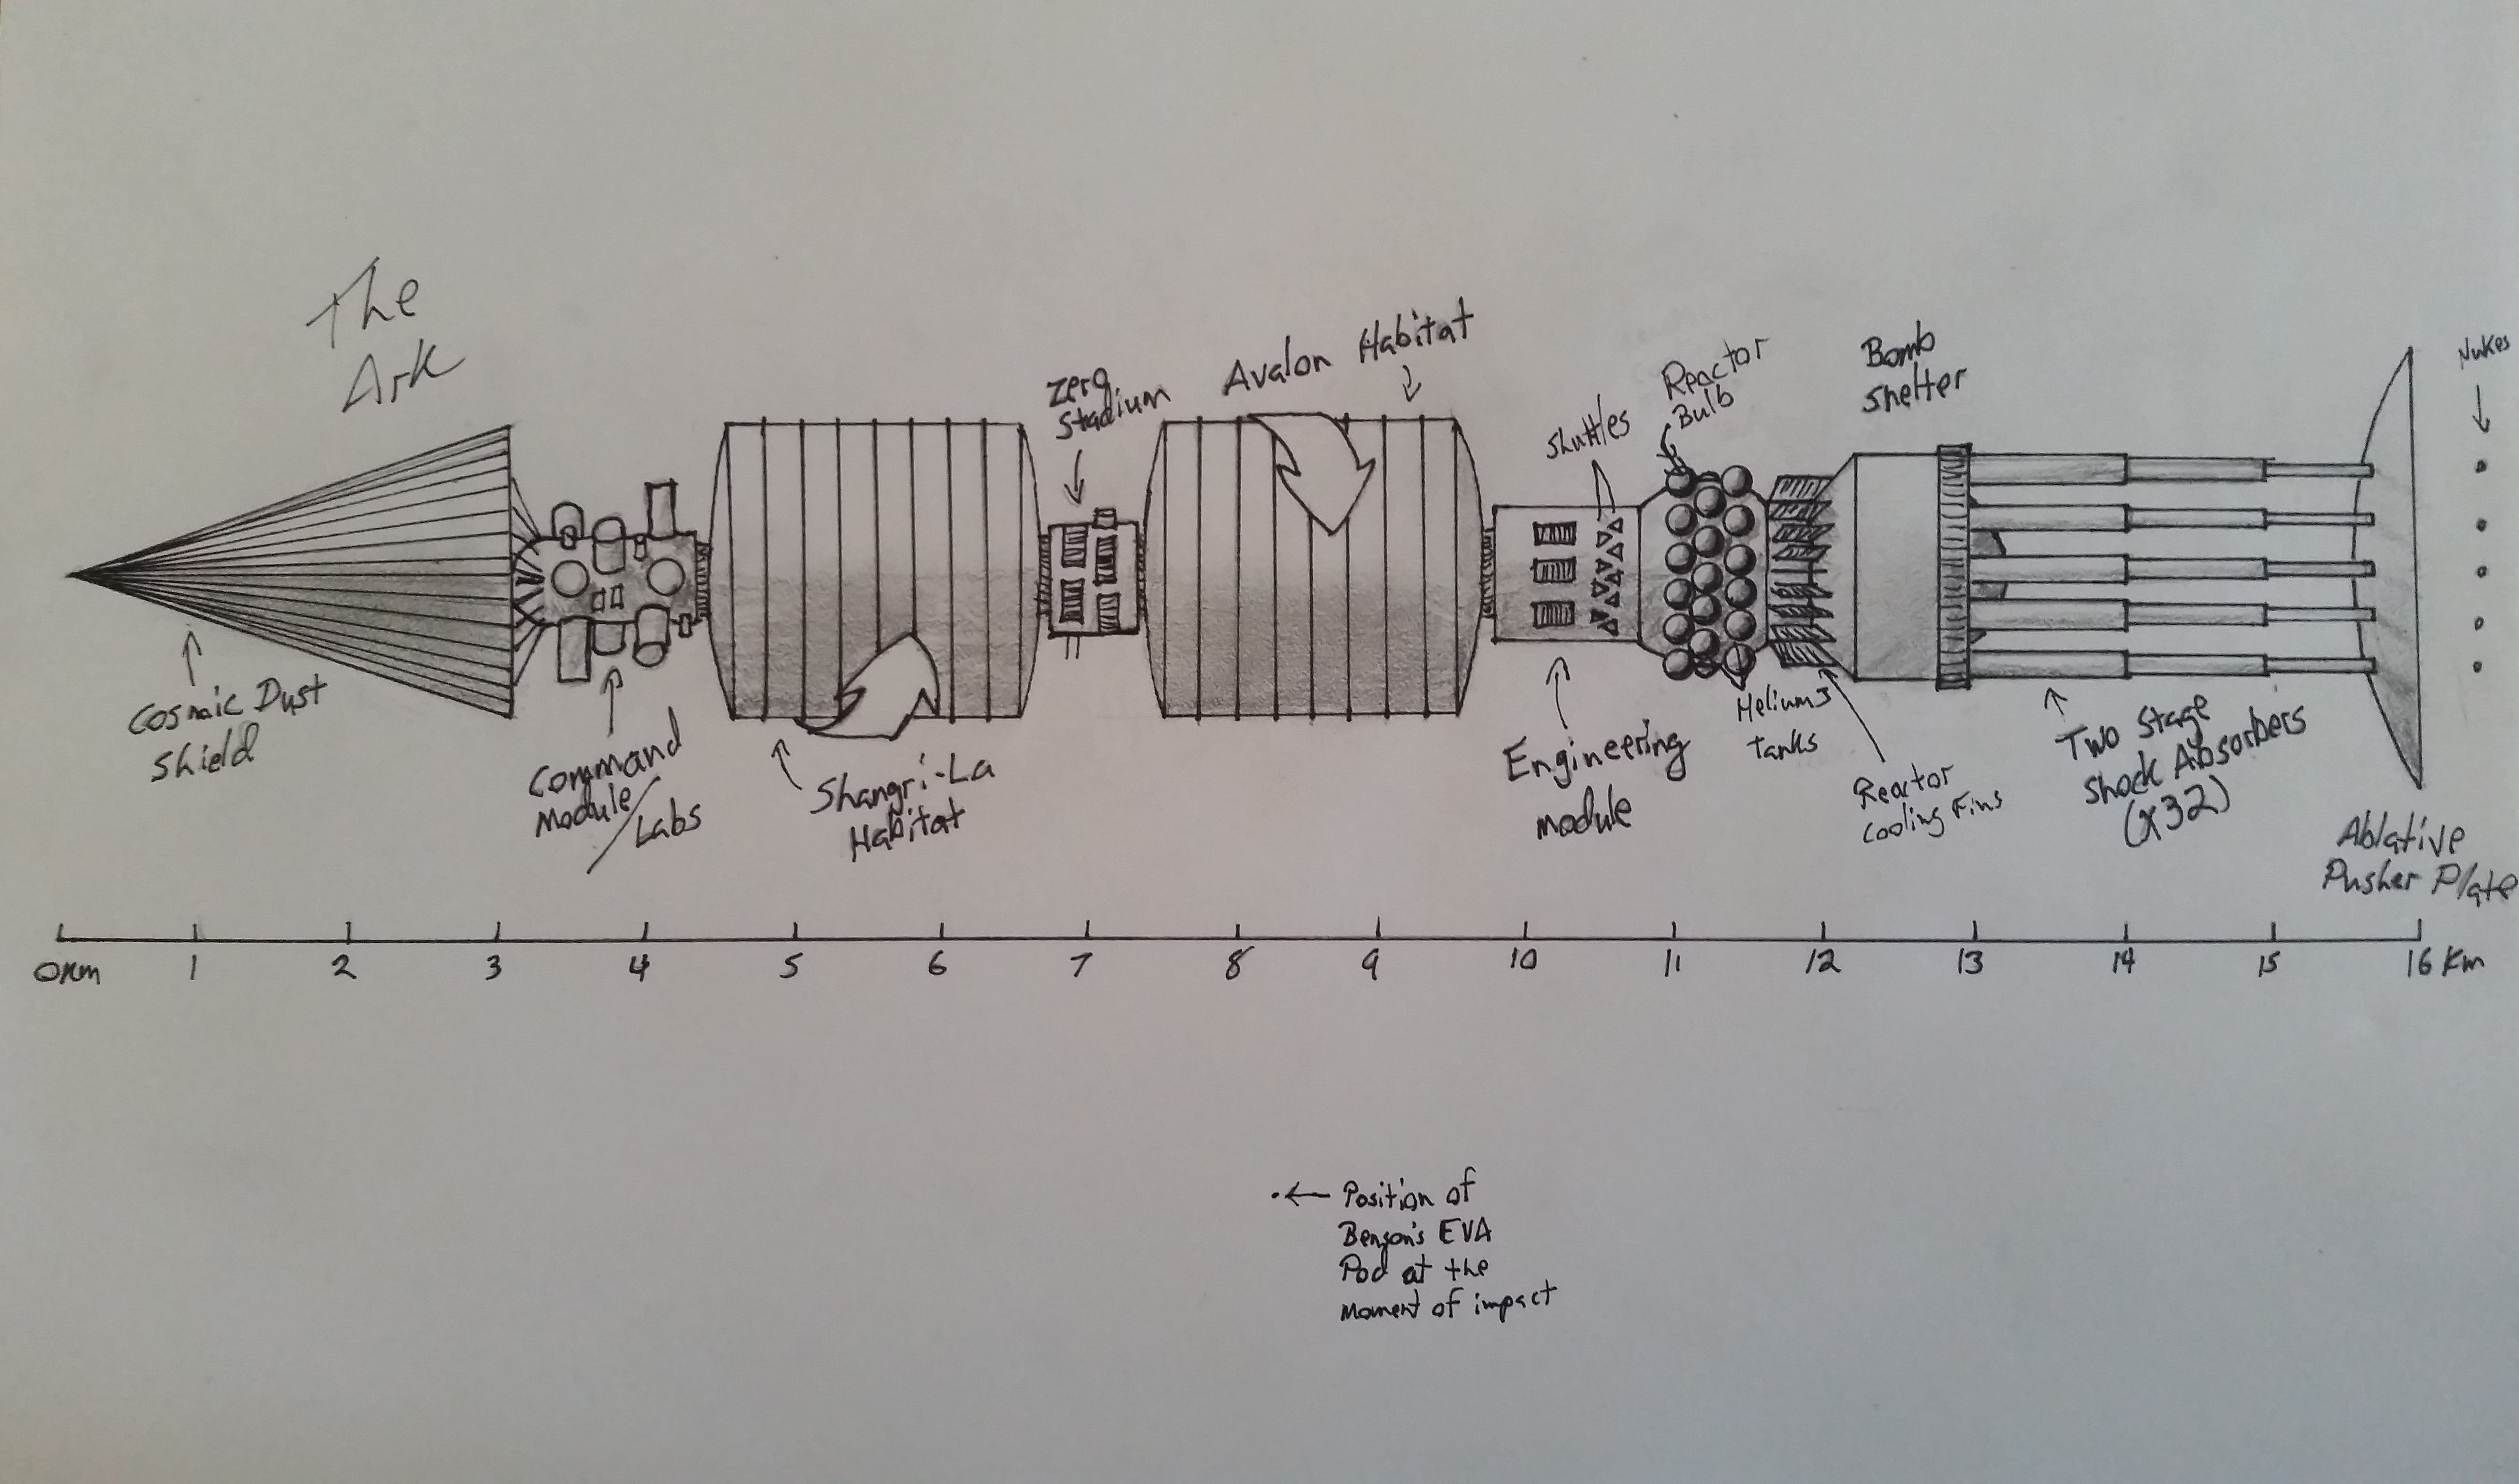 The
Ark
Cosmaic Dust
Shield
Command
Module/
Labs
Shangri-La
Habitat
Zero G
Stadium
Avalon Habitat
Shuttles
Reactor
Bulb
Bomb
Shelter
Nukes
Engineering
module
Helium 3
Tanks
Reactor
Cooling Fins
Two Stage
Shock Absorbers
(x32)
Ablative
Pusher Plate
0km 1 2 3 4 5 6 7 8 9 10 11 12 13 14 15 16 km
Position of
Benson's EVA
Pod at the
Moment of impact